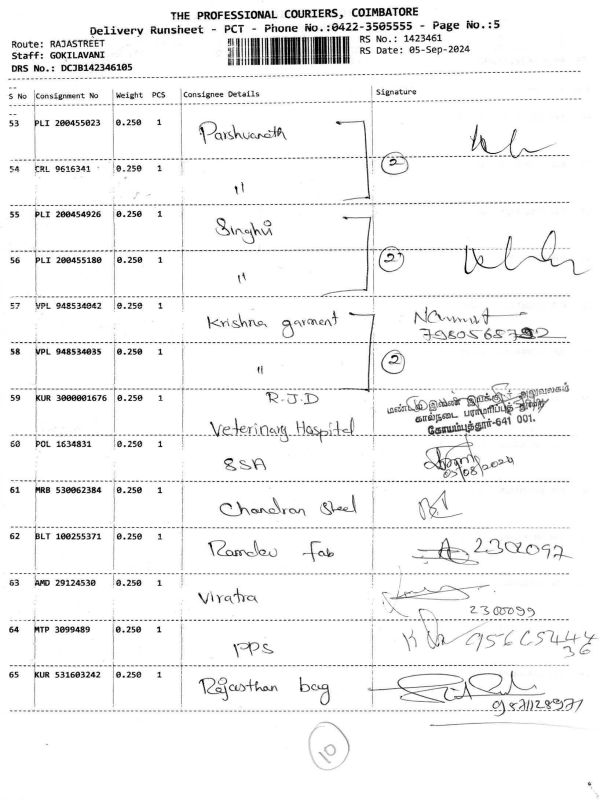 THE PROFESSIONAL COURIERS, COIMBATORE
Delivery Runsheet - PCT - Phone No.:0422-3505555 - Page No.:5
Route: RAJASTREET
RS No.: 1423461
Staff: GOKILAVANI
RS Date: 05-Sep-2024
DRS No.: DCJB142346105
S No Consignment No Weight PCS Consignee Details Signature
53 PLI 200455023 0.250 1 Parshvanath
54 CRL 9616341 0.250 1 "
2
55 PLI 200454926 0.250 1 Singhvi
56 PLI 200455180 0.250 1 "
2
57 VPL 948534042 0.250 1 Krishna garment
58 VPL 948534035 0.250 1 "
2
59 KUR 3000001676 0.250 1 R.J.D
Veterinary Hospital
கால்நடை பராமரிப்புத் துறை
கோயம்புத்தூர்-641 001.
60 POL 1634831 0.250 1 SSA
05/08/2024
61 MRB 530062384 0.250 1 Chandran Steel
62 BLT 100255371 0.250 1 Ramdev fab 2302097
63 AMD 29124530 0.250 1 Viratra
2300099
64 MTP 3099489 0.250 1 PPS
65 KUR 531603242 0.250 1 Rajasthan bag
10